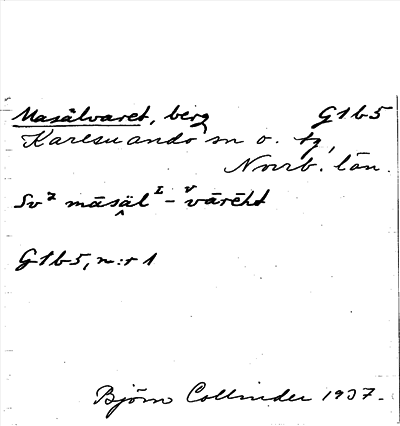 Masälvaret, berg G1b5
Karesuando sn o. tg,
Norrb. län.
Sv² māsäl - vārēht
G1b5, n:r 1
Björn Collinder 1937.